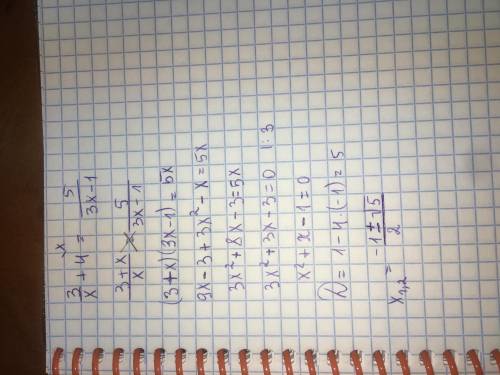 3/x + 4^x = 5/(3x-1)
(3+x)/x = 5/(3x-1)
(3+x)(3x-1) = 5x
9x-3+3x²-x=5x
3x²+8x-3=5x
3x²+3x-3=0 |:3
x²+x-1=0
D = 1-4·(-1)=5
x₁,₂ = (-1±√5)/2